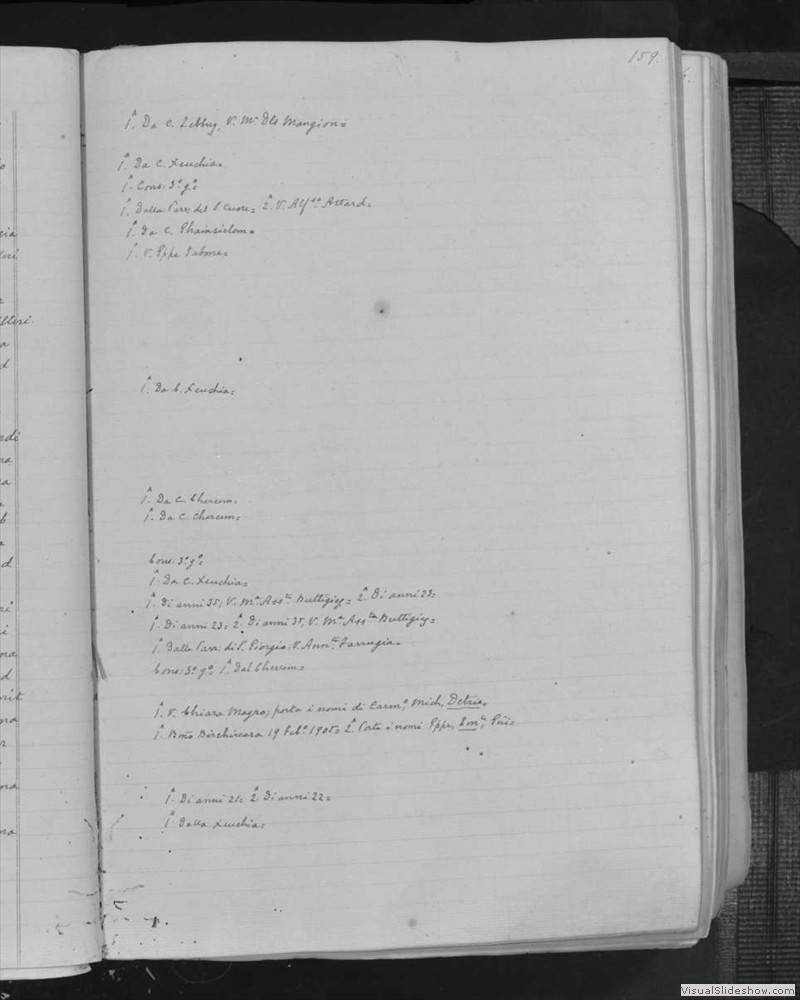 159.
1ᵃ. Da C. Zebbug, V. Mᵃ Dls Mangion=
1ᵃ. Da C. Xeuchia=
1ᵃ. Cons: 3º gº=
1ᵃ. Dalla Parr: del S. Cuore= 2ᵃ. V. Alfˢᵒ Attard=
1ᵃ. Da C. Ghainsielem=
1ᵃ. V. Pppe Tabone=
1ᵃ. Da C. Xeuchia=
1ᵃ. Da C. Chercem=
1ᵃ. Da C. Chercem=
Cons: 3º gº=
1ᵃ. Da C. Xeuchia=
1ᵃ. Di anni 35; V. Mᵃ Assᵗᵃ Buttigieg= 2ᵃ. Di anni 23=
1ᵃ. Di anni 23= 2ᵃ. Di anni 35, V. Mᵃ Assᵗᵃ Buttigieg=
1ᵃ. Dalla Parr: di S. Giorgio; V. Annᵗᵃ Farrugia=
Cons: 3º gº= 1ᵃ. Dal Chercem=
1ᵃ. V. Chiara Magro; porta i nomi di Carmº, Mich,
1ᵃ. Birchircara 19 Febº 1905= 2ᵃ. Porta i nomi Pppe,
1ᵃ. Di anni 21= 2ᵃ. Di anni 22=
1ᵃ. Dalla Xeuchia=
VisualSlideshow.com